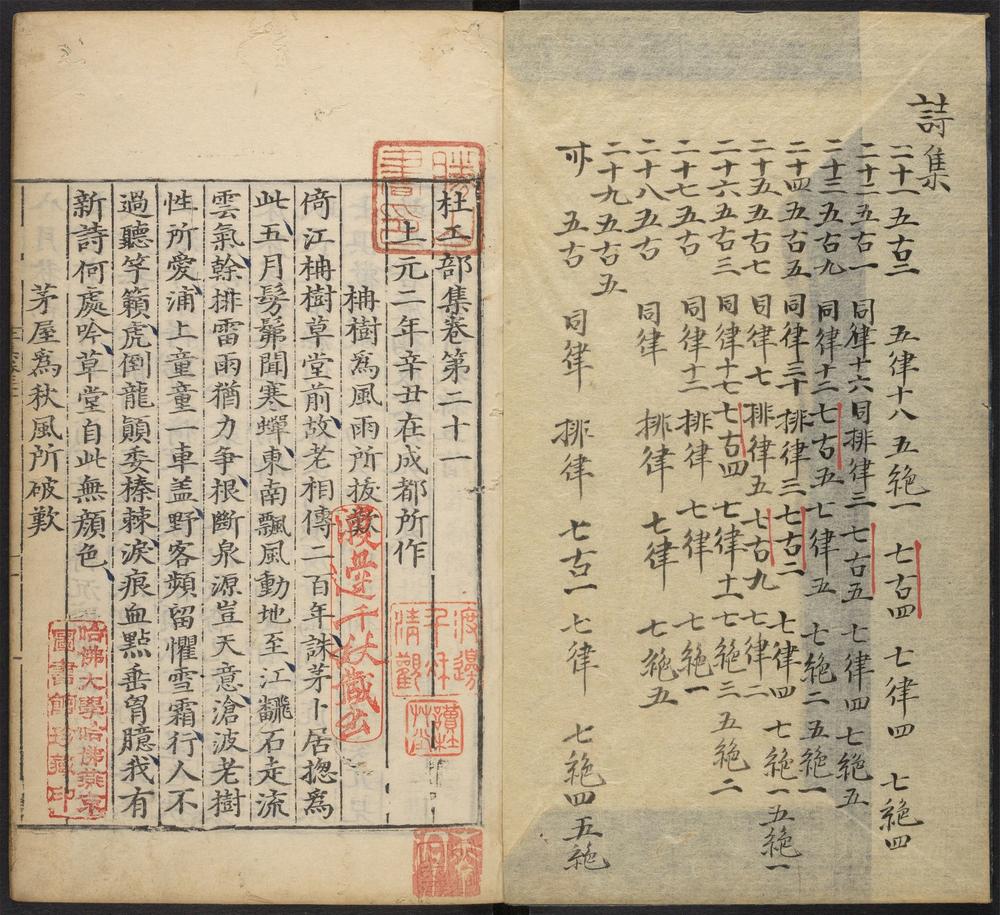 詩集
二十一 五古二 五律十八 五絶一 七古四 七律四 七絶四
二十二 五古一 同律十六 同排律三 七古五 七律四 七絶五
二十三 五古九 同律十二 七古五 七律五 七絶二 五絶一
二十四 五古五 同律三十 排律三 七古二 七律四 七絶一 五絶一
二十五 五古七 同律七 排律五 七古九 七律二
二十六 五古三 同律十七 七古四 七律十一 七絶三 五絶二
二十七 五古 同律十二 排律 七律 七絶一
二十八 五古 同律 排律 七律 七絶五
二十九 五古五
卅 五古 同律 排律 七古一 七律 七絶四 五絶
杜工部集卷第二十一
上元二年辛丑在成都所作
柟樹爲風雨所拔歎
倚江柟樹草堂前故老相傳二百年誅茅卜居揔爲
此五月髣髴聞寒蟬東南飄風動地至江飜石走流
雲氣幹排雷雨猶力争根斷泉源豈天意滄波老樹
性所愛浦上童童一車盖野客頻留懼雪霜行人不
過聽竽籟虎倒龍顛委榛棘淚痕血點垂胷臆我有
新詩何處吟草堂自此無顔色
茅屋爲秋風所破歎
渡邊千秋藏書
渡邊
千秋
清觀
讀杜
哈佛大學哈佛燕京
圖書館珍藏印